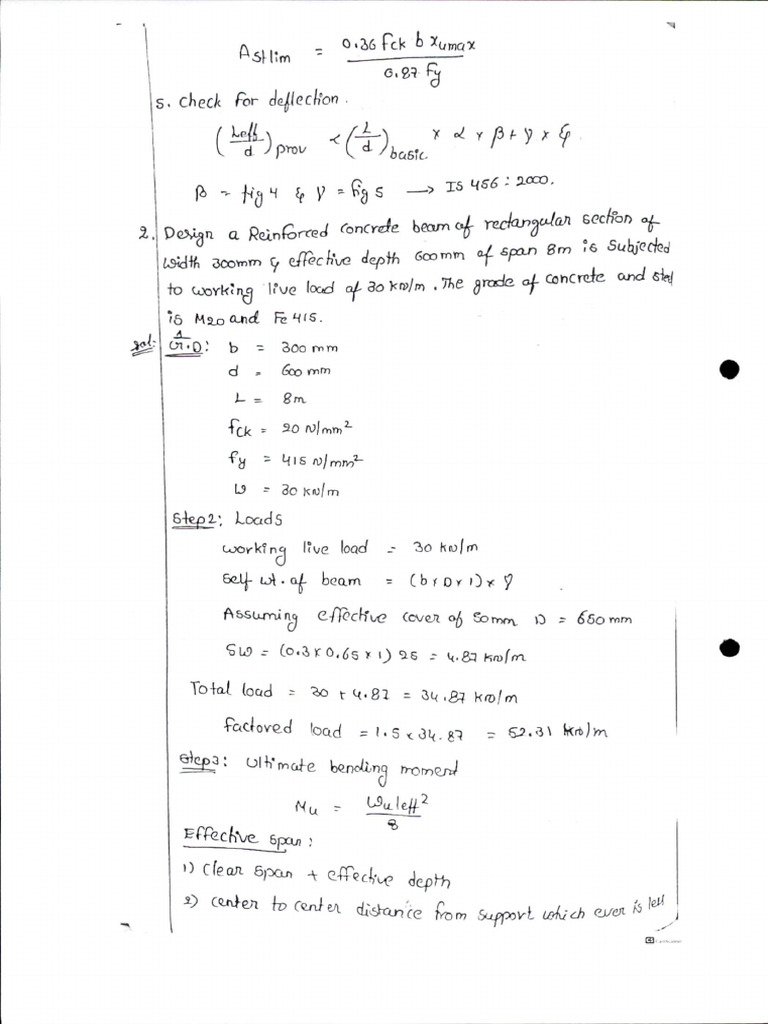 Astlim = 0.36 fck b xumax / 0.87 fy
5. Check for deflection.
(Leff/d)prov < (L/d)basic × α × β + γ × ξ
β = fig 4 & γ = fig 5 → IS 456 : 2000.
2. Design a Reinforced concrete beam of rectangular section of
width 300mm & effective depth 600mm of span 8m is subjected
to working live load of 30 kN/m. The grade of concrete and steel
is M20 and Fe 415.
Sol: 1 G.D: b = 300 mm
d = 600 mm
L = 8m
fck = 20 N/mm²
fy = 415 N/mm²
W = 30 kN/m
Step2: Loads
working live load = 30 kN/m
self wt. of beam = (b × D × 1) × γ
Assuming effective cover of 50mm D = 650 mm
SW = (0.3 × 0.65 × 1) 25 = 4.87 kN/m
Total load = 30 + 4.87 = 34.87 kN/m
factored load = 1.5 × 34.87 = 52.31 kN/m
Step3: Ultimate bending moment
Mu = Wu leff² / 8
Effective span:
1) clear span + effective depth
2) center to center distance from support which ever is less